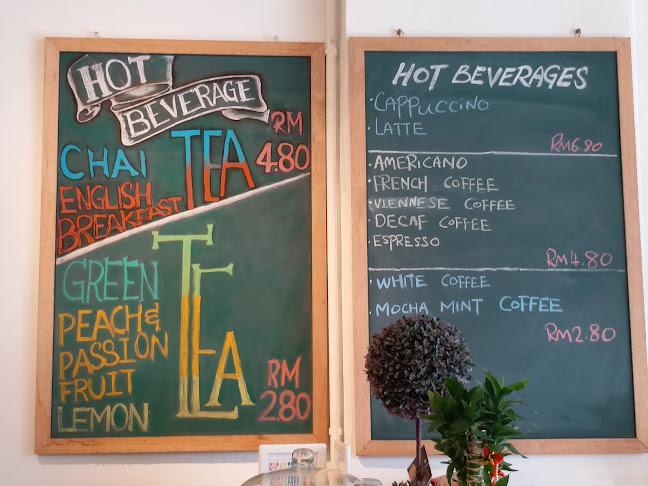 HOT
BEVERAGE
RM
4.80
CHAI
ENGLISH
BREAKFAST
TEA
GREEN
PEACH &
PASSION
FRUIT
LEMON
TEA
RM
2.80
HOT BEVERAGES
· CAPPUCCINO
· LATTE
RM6.80
· AMERICANO
· FRENCH COFFEE
· VIENNESE COFFEE
· DECAF COFFEE
· ESPRESSO
RM4.80
· WHITE COFFEE
· MOCHA MINT COFFEE
RM2.80